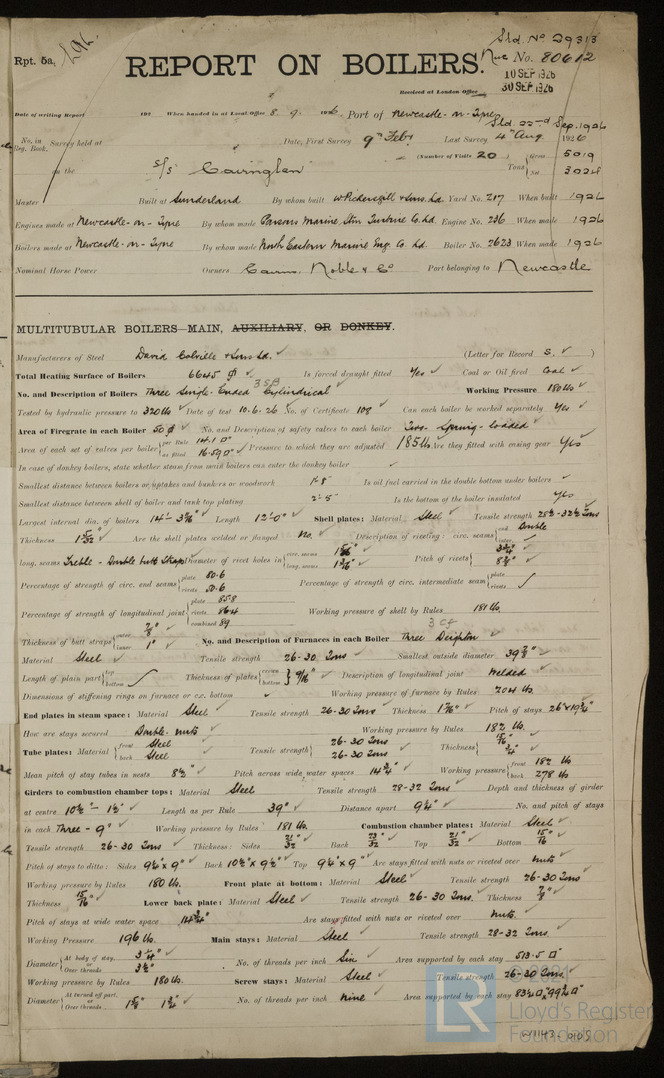 Sld. No 29313
Rpt. 5a.
REPORT ON BOILERS.
No. 80612
10 SEP 1926
30 SEP 1926
Received at London Office
Date of writing Report 192 When handed in at Local Office 8. 9. 1926 Port of Newcastle-on-Tyne
No. in Reg. Book. Survey held at Date, First Survey 9th Feby Last Survey 4th Aug. 1926
(Number of Visits 20)
on the S/S Cairnglen Tons Gross 5019 Net 3024
Master Built at Sunderland By whom built W Pickersgill & Sons Ld. Yard No. 217 When built 1926
Engines made at Newcastle-on-Tyne By whom made Parsons Marine Stm Turbine Co. Ld. Engine No. 236 When made 1926
Boilers made at Newcastle-on-Tyne By whom made North Eastern Marine Eng. Co. Ld. Boiler No. 2623 When made 1926
Nominal Horse Power Owners Cairns, Noble & Co Port belonging to Newcastle
MULTITUBULAR BOILERS—MAIN, AUXILIARY, OR DONKEY.
Manufacturers of Steel David Colville & Sons Ld. (Letter for Record S. )
Total Heating Surface of Boilers 6645 Is forced draught fitted Yes Coal or Oil fired Coal
3 SB
No. and Description of Boilers Three Single-Ended Cylindrical Working Pressure 180 lbs
Tested by hydraulic pressure to 320 lbs Date of test 10.6.26 No. of Certificate 108 Can each boiler be worked separately Yes
Area of Firegrate in each Boiler 50 No. and Description of safety valves to each boiler Two- Spring-loaded
Area of each set of valves per boiler per Rule 14.1 □" as fitted 16.59 □" Pressure to which they are adjusted 185 lbs Are they fitted with easing gear Yes
In case of donkey boilers, state whether steam from main boilers can enter the donkey boiler
Smallest distance between boilers or uptakes and bunkers or woodwork 1'-8" Is oil fuel carried in the double bottom under boilers
Smallest distance between shell of boiler and tank top plating 2'-5" Is the bottom of the boiler insulated yes
Largest internal dia. of boilers 14'-3 9/16" Length 12'-0" Shell plates: Material Steel Tensile strength 28½-32½ Tons
Thickness 1 5/32" Are the shell plates welded or flanged No Description of riveting: circ. seams end Double inter.
long. seams Treble-Double butt Straps Diameter of rivet holes in circ. seams long. seams 1 3/16" Pitch of rivets
Percentage of strength of circ. end seams plate 60.6 rivets 50.6 Percentage of strength of circ. intermediate seam plate rivets
Percentage of strength of longitudinal joint plate 85.8 rivets 86.4 combined 89 Working pressure of shell by Rules 181 lbs.
3 cf
Thickness of butt straps outer 7/8" inner 1" No. and Description of Furnaces in each Boiler Three Deighton
Material Steel Tensile strength 26-30 Tons Smallest outside diameter 39 7/8"
Length of plain part top bottom Thickness of plates crown bottom 9/16" Description of longitudinal joint Welded
Dimensions of stiffening rings on furnace or c.c. bottom Working pressure of furnace by Rules 204 lbs.
End plates in steam space: Material Steel Tensile strength 26-30 Tons Thickness 1 7/16" Pitch of stays
How are stays secured Double nuts Working pressure by Rules 182 lbs.
Tube plates: Material front Steel back Steel Tensile strength 26-30 Tons 26-30 Tons Thickness 15/16" 3/4"
Mean pitch of stay tubes in nests 8½" Pitch across wide water spaces 14¾" Working pressure front 182 lbs back 278 lbs
Girders to combustion chamber tops: Material Steel Tensile strength 28-32 Tons Depth and thickness of girder
at centre 10½"-1½" Length as per Rule 39" Distance apart 9¼" No. and pitch of stays
in each Three-9" Working pressure by Rules 181 lbs. Combustion chamber plates: Material Steel
Tensile strength 26-30 Tons Thickness: Sides 21/32" Back 23/32 Top 21/32" Bottom 15/16"
Pitch of stays to ditto: Sides 9¼" x 9" Back 10½" x 9½" Top 9¼" x 9" Are stays fitted with nuts or riveted over Nuts
Working pressure by Rules 180 lbs. Front plate at bottom: Material Steel Tensile strength 26-30 Tons
Thickness 15/16" Lower back plate: Material Steel Tensile strength 26-30 Tons. Thickness 7/8"
Pitch of stays at wide water space 14¾" Are stays fitted with nuts or riveted over Nuts.
Working Pressure 196 lbs. Main stays: Material Steel Tensile strength 28-32 Tons.
Diameter At body of stay, 3¼" or Over threads 3½" No. of threads per inch Six Area supported by each stay 513.5 □"
Working pressure by Rules 180 lbs. Screw stays: Material Steel Tensile strength 26-30 Tons.
Diameter At turned off part, or Over threads 1 5/8" 1¾" No. of threads per inch Nine Area supported by each stay 83¼ □" 99¾ □"
© 2021
LR
Lloyd's Register
Foundation
W1143-0105